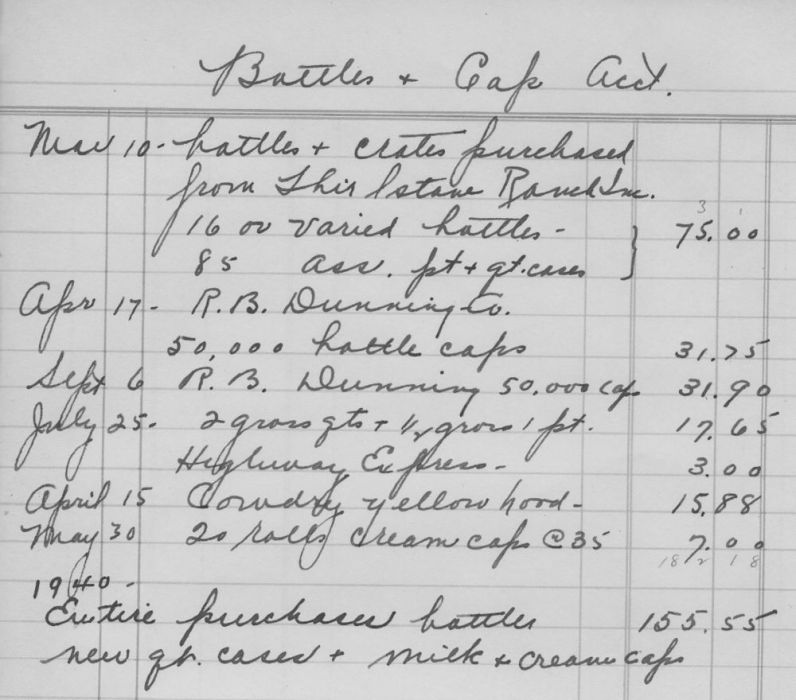 Bottles + Cap Acct.
Mar 10 - bottles + crates purchased
from Thirlstane Ranch Inc.
3 1
16 00 varied bottles - 75.00
85 ass. pt + qt. cases
Apr 17 - R. B. Dunning Co.
50,000 bottle caps 31.75
Sept 6 R. B. Dunning 50,000 cap 31.90
July 25 - 2 gross qts + 1/2 gross 1 pt. 17.65
Highway Express - 3.00
April 15 Cowdry yellow hood - 15.88
May 30 20 rolls cream caps @ 35 7.00
182 18
1940 -
Entire purchases bottles 155.55
new qt. cases + milk + cream caps